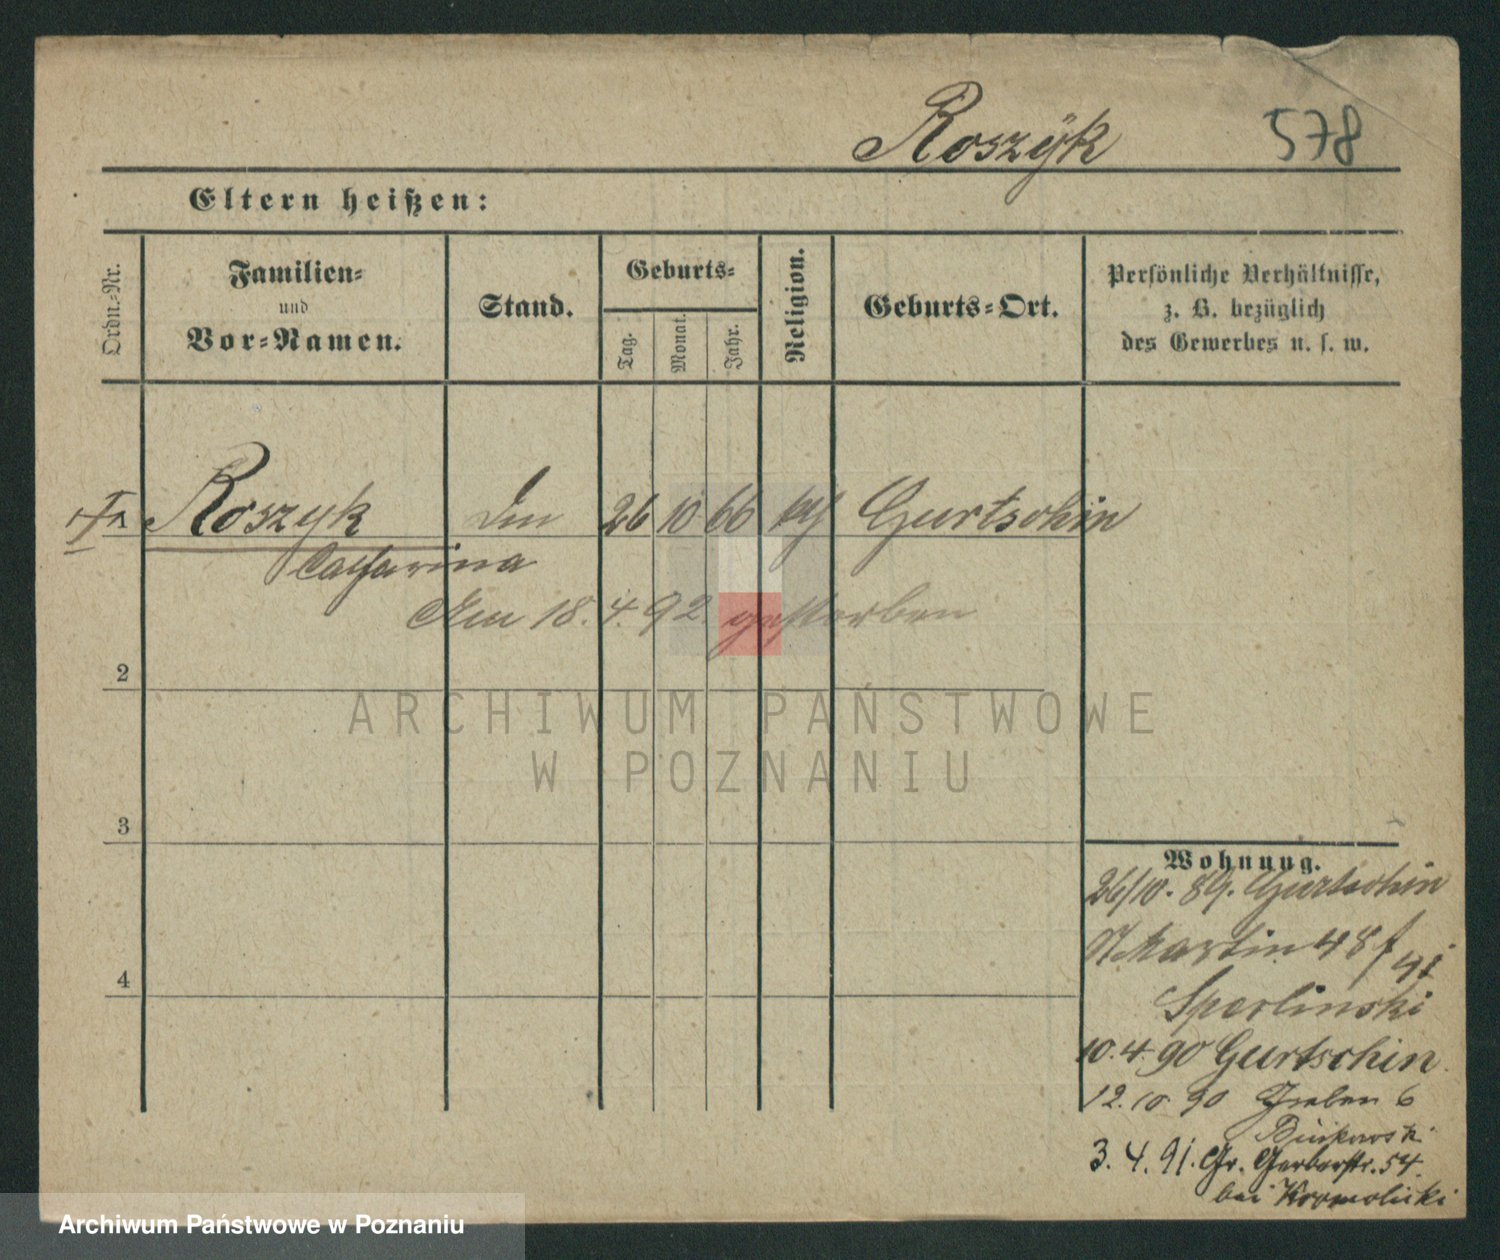 Roszÿk 578
Eltern heißen:
Ordn.-Nr.
Familien-
und
Vor-Namen.
Stand.
Geburts-
Tag.
Monat.
Jahr.
Religion.
Geburts-Ort.
Persönliche Verhältnisse,
z. B. bezüglich
des Gewerbes u. s. w.
Roszyk 26 10 66 Gurtschin
Catharina
Am 18. 4. 92. gestorben
2
3
4
Wohnung.
26/10. 89. Gurtschin
Martin 48
Sperlinski
10. 4. 90 Gurtschin.
12. 10. 90 Graben 6
Buikowski
3. 4. 91. Gr. Gerberstr. 54
bei Kromolicki
ARCHIWUM PAŃSTWOWE
W POZNANIU
Archiwum Państwowe w Poznaniu